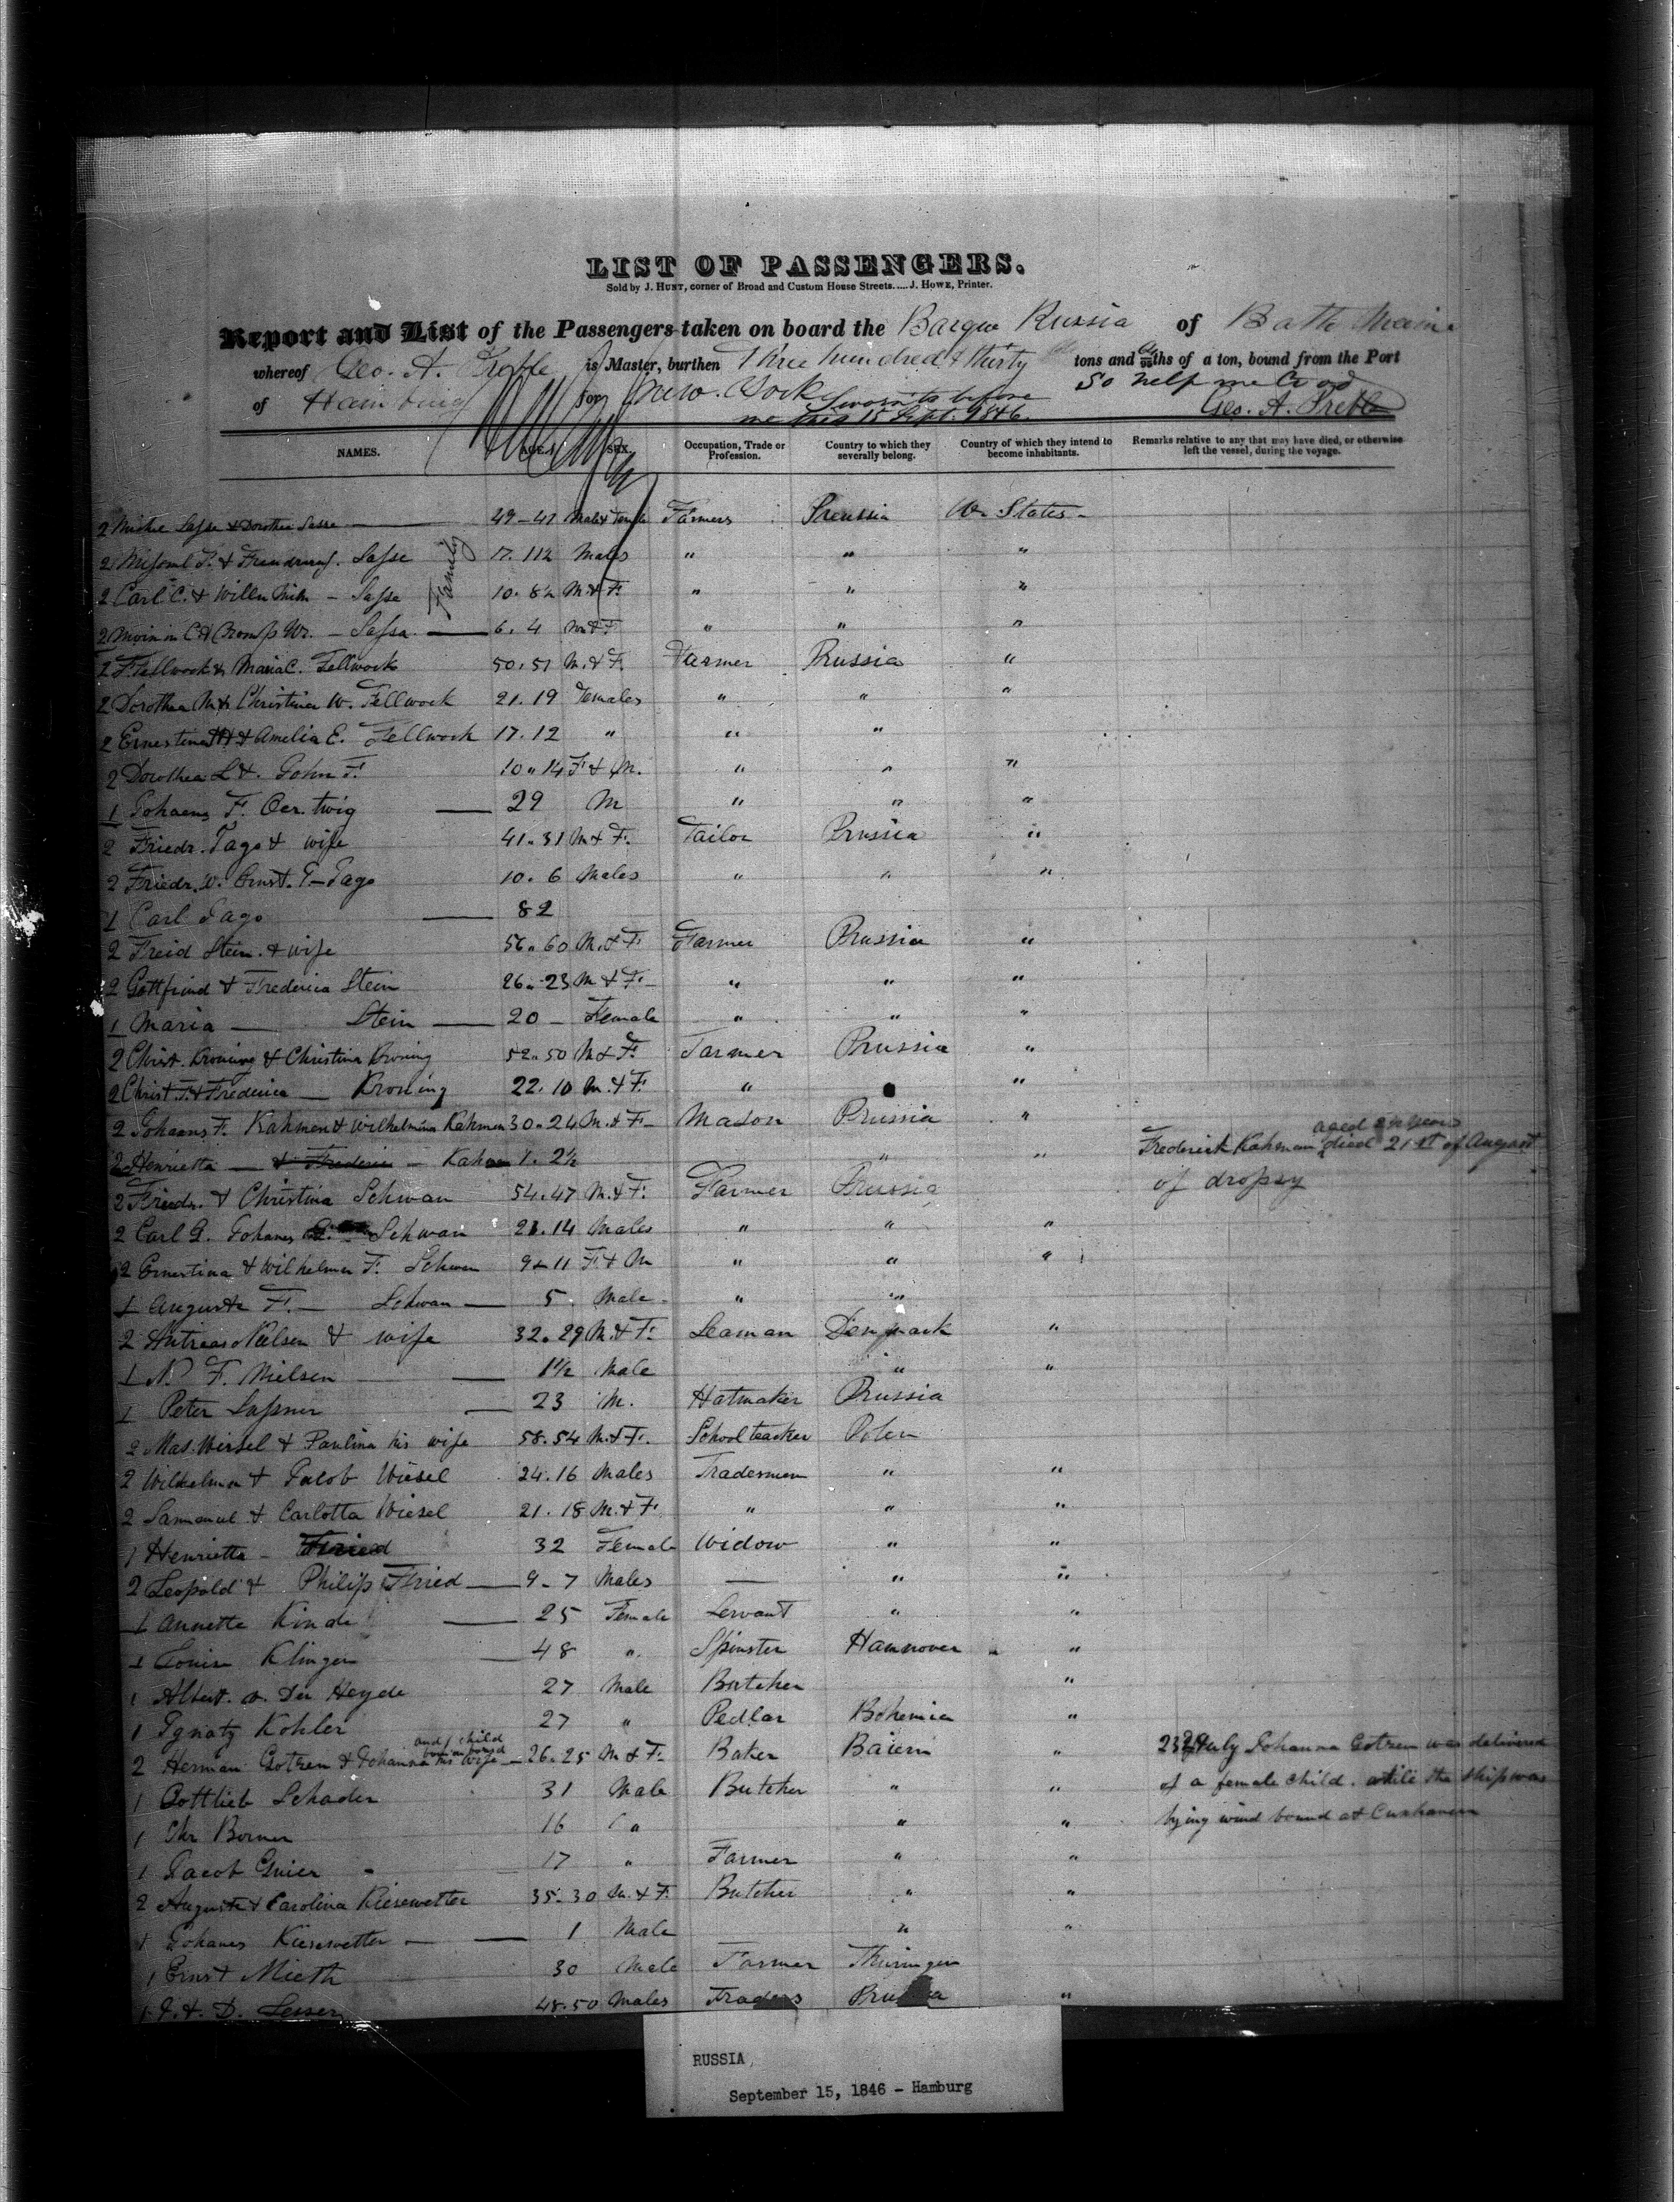 LIST OF PASSENGERS.
Sold by J. HUNT, corner of Broad and Custom House Streets.....J. HOWE, Printer.
Report and List of the Passengers taken on board the Barque Russia of Bath Maine
whereof Geo. A. Preble is Master, burthen Three hundred & thirty tons and 95ths of a ton, bound from the Port
of Hamburg for New York
Sworn to before
me this 15 Sept. 1846.
So help me God
Geo. A. Preble
NAMES. AGES SEX. Occupation, Trade or Profession. Country to which they severally belong. Country of which they intend to become inhabitants. Remarks relative to any that may have died, or otherwise left the vessel, during the voyage.
2 Sasse & Dorothea Sasse 49-47 Male & Female Farmers Preussia U. States
2 Sasse 17. 11½ Males " " "
Family
2 Carl C. & Sasse 10. 8½ M & F. " " "
2 Sassa 6. 4 M & F " " "
2 F. Fellwock & Maria C. Fellwock 50. 51 M. & F. Farmer Prussia "
2 Dorothea M & Christina W. Fellwock 21. 19 Females " " "
2 Ernestina H & Amelia E. Fellwock 17. 12 " " "
2 Dorothea L &. John F. 10 " 14 F & M. " " "
1 Johaens F. Oer.twig 29 M " " "
2 Friedr. Tago & wife 41. 31 M & F. Tailor Prussia "
2 Friedr. W. Ernst. T- Tago 10. 6 Males " " "
1 Carl Tago 82
2 Freid Stein. & wife 56. 60 M. & F Farmer Prussia "
2 Gottfriend & Frederica Stein 26. 23 M & F " " "
1 Maria Stein 20 Female " " "
2 Christ. Kroning & Christina Kroning 52. 50 M & F. Farmer Prussia "
2 Christ F. & Frederica Kroning 22. 10 M. & F. " "
2 Johaens F. Kahmen & Wilhelmina Kahmen 30. 24 M. & F. Mason Prussia "
aged 2½ years
Frederick Kahman died 21st of August
2 Henrietta & Frederic Kahmen 1. 2½ " "
of dropsy
2 Friedr. & Christina Schwan 54. 47 M. & F. Farmer Prussia
2 Carl G. Johanes Schwan 21. 14 Males " " "
2 Ernestina & Wilhelmen F. Schwan 9 & 11 F. & M " " "
1 Auguste F. Schwan 5 Male " "
2 Nielsen & wife 32. 29 M. & F. Seaman Denmark "
1 N. F. Nielsen 1½ Male " "
1 Peter Lassner 23 M. Hatmaker Prussia
2 Mas. Wiesel & Paulina his wife 58. 54 M. & F. School teacker Polen
2 Wilhelmen & Jacob Wiesel 24. 16 Males Tradesmen " "
2 Sammuel & Carlotta Wiesel 21. 18 M. & F. " " "
1 Henrietta Fried 32 Female Widow " "
2 Leopold & Philip Fried 9 - 7 Males " "
1 Annette Kinde 25 Female Servant " "
1 Louise Klingen 48 " Spinster Hannover "
1 Albert. v. Der Heyde 27 Male Butcher "
1 Ignatz Kohler 27 " Pedlar Bohemia "
and 1 child
born on board
2 Herman Gotren & Johanna his wife 26. 25 M & F. Baker Baiern "
July Johanna Gotren was delivered
1 Gottlieb Schader 31 Male Butcher " "
of a female child. while the ship was
1 Chr Borner 16 " " "
lying wind bound at Cuxhaven
1 Jacob Gnier 17 " Farmer " "
2 August & Carolina Kiesewetter 35. 30 M. & F. Butcher " "
1 Johanes Kiesewetter 1 Male " "
1 Ernst Mieth 30 Male Farmer Thuringen
1 J. & D. Lesser 48. 50 Males Traders Prussia "
RUSSIA
September 15, 1846 - Hamburg